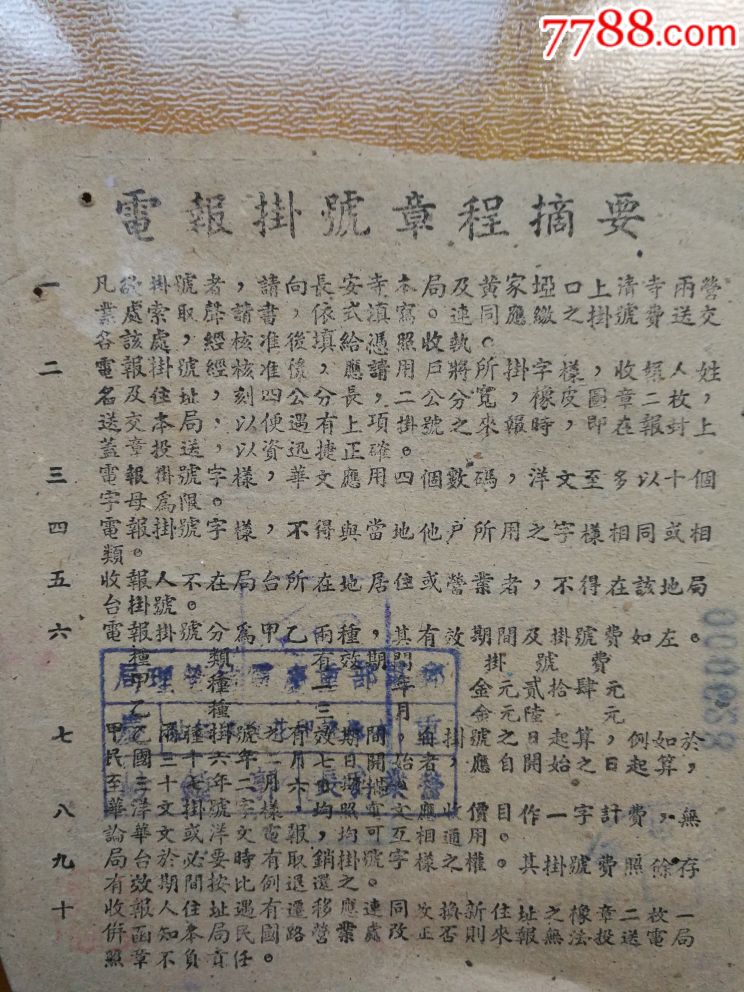 7788.com
中国收藏热线
電報掛號章程摘要
一 凡欲掛號者,請向長安寺本局及黃家埡口上清寺兩營
業處索取聲請書,依式填寫。連同應繳之掛號費送交
各該處,經核准後填給憑照收執。
二 電報掛號經核准後,應請用戶將所掛字樣,收報人姓
名及住址,刻四公分長,二公分寬,橡皮圖章二枚,
送交本局,以便遇有上項掛號之來報時,即在報封上
蓋章投送,以資迅捷正確。
三 電報掛號字樣,華文應用四個數碼,洋文至多以十個
字母為限。
四 電報掛號字樣,不得與當地他戶所用之字樣相同或相
類。
五 收報人不在局台所在地居住或營業者,不得在該地局
台掛號。
六 電報掛號分為甲乙兩種,其有效期間及掛號費如左。
種類 有效期間 掛號費
甲種 一年 金元貳拾肆元
乙種 三月 金元陸元
七 甲乙兩種掛號,有效期間,自掛號之日起算,例如於
民國三十七年
八 華洋文掛號字樣,均照華文應收價目作一字計費,無
論華文或洋文電報,均可互相通用。
九 局台於必要時有取銷掛號字樣之權。其掛號費照餘存
有效期間按比例退還之。
十 收報人住址遇有遷移應連同改換新住址之橡章二枚一
併函知本局民國路營業處改正否則來報無法投送電局
照章不負責任。